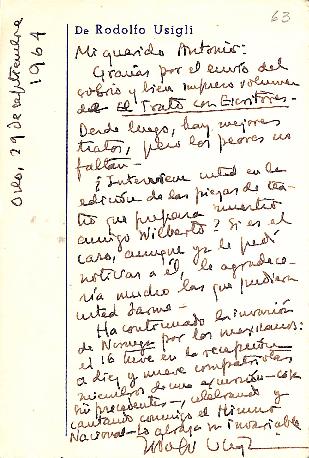 63
De Rodolfo Usigli
Oslo, 29 de septiembre
1964
Mi querido Antonio:
Gracias por el envío del
sobrio y bien impreso volumen
de El Trato con Escritores.
Desde luego, hay mejores
tratos, pero los peores no
faltan—
¿Interviene usted en la
edición de las piezas de tea-
tro que prepara nuestro
amigo Wilberto? Si es el
caso, aunque ya le pedí
noticias a él, le agradece-
ría mucho las que pudiera
usted darme—
Ha continuado la invasión
de Noruega por los mexicanos:
el 16 tuve en la recepción
a diez y nueve compatriotas
miembros de una excursión—cosa
sin precedentes—, celebrando y
cantando conmigo el Himno
Nacional—Lo abraza su invariable
Rodolfo Usigli